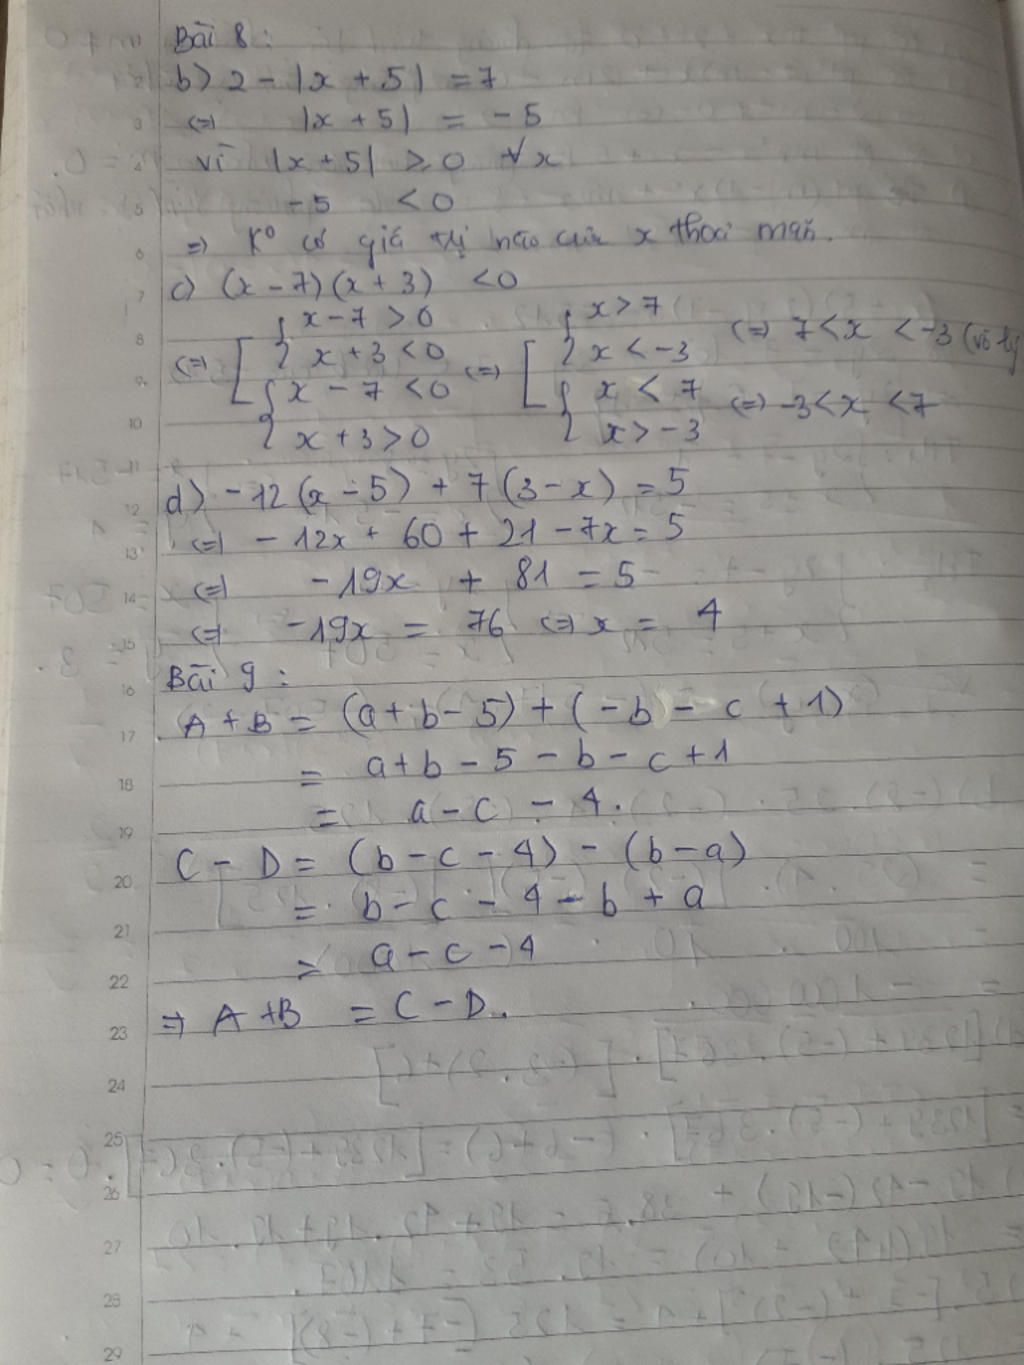 Bài 8:
b) 2 - |x + 5| = 7
<=> |x + 5| = -5
vì |x + 5| ⩾ 0 ∀x
-5 < 0
=> K° có giá trị nào của x thoả mãn.
c) (x - 7)(x + 3) < 0
<=> [ { x - 7 > 0 x + 3 < 0 { x - 7 < 0 x + 3 > 0 <=> [ { x > 7 x < -3 <=> 7 < x < -3 (vô lý { x < 7 x > -3 <=> -3 < x < 7
d) -12(x - 5) + 7(3 - x) = 5
<=> -12x + 60 + 21 - 7x = 5
<=> -19x + 81 = 5
<=> -19x = 76 <=> x = 4
Bài 9:
A + B = (a + b - 5) + (-b - c + 1)
= a + b - 5 - b - c + 1
= a - c - 4.
C - D = (b - c - 4) - (b - a)
= b - c - 4 - b + a
= a - c - 4
=> A + B = C - D.